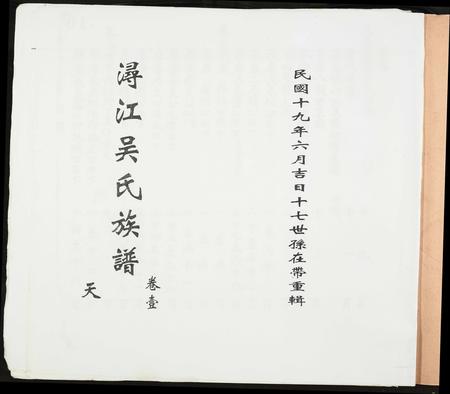 民國十九年六月吉日十七世孫在帶重輯
潯江吳氏族譜
卷壹
天